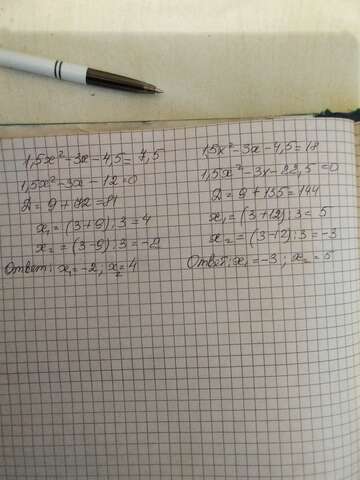 1,5x² - 3x - 4,5 = 7,5
1,5x² - 3x - 12 = 0
D = 9 + 72 = 81
x₁ = (3+9):3 = 4
x₂ = (3-9):3 = -2
Ответ: x₁ = -2, x₂ = 4
1,5x² - 3x - 4,5 = 18
1,5x² - 3x - 22,5 = 0
D = 9 + 135 = 144
x₁ = (3+12):3 = 5
x₂ = (3-12):3 = -3
Ответ: x₁ = -3; x₂ = 5